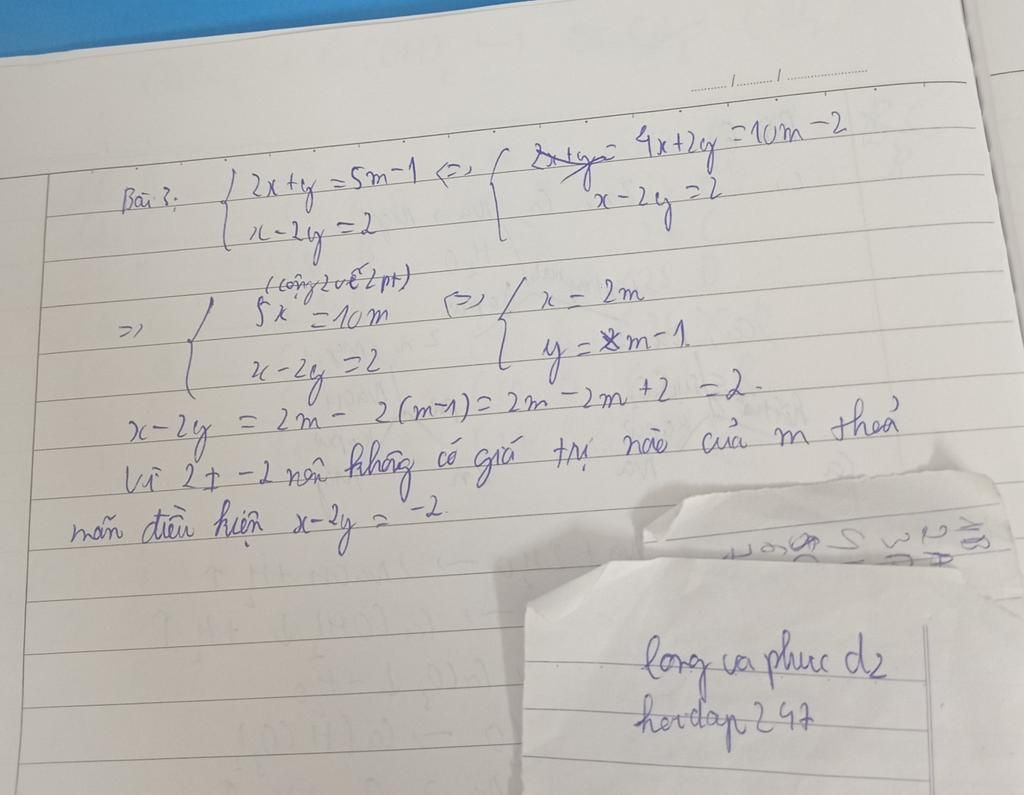 Bài 3: { 2x+y = 5m-1 <=> { 4x+2y = 10m-2
x-2y = 2 x-2y = 2
(cộng 2 vế 2 pt)
=> { 5x = 10m <=> { x = 2m
x-2y = 2 y = m-1.
x-2y = 2m - 2(m-1) = 2m-2m+2 = 2.
Vì 2 ≠ -2 nên không có giá trị nào của m thoả
mãn điều kiện x-2y = -2.
long ca phuc d2
hoidap247